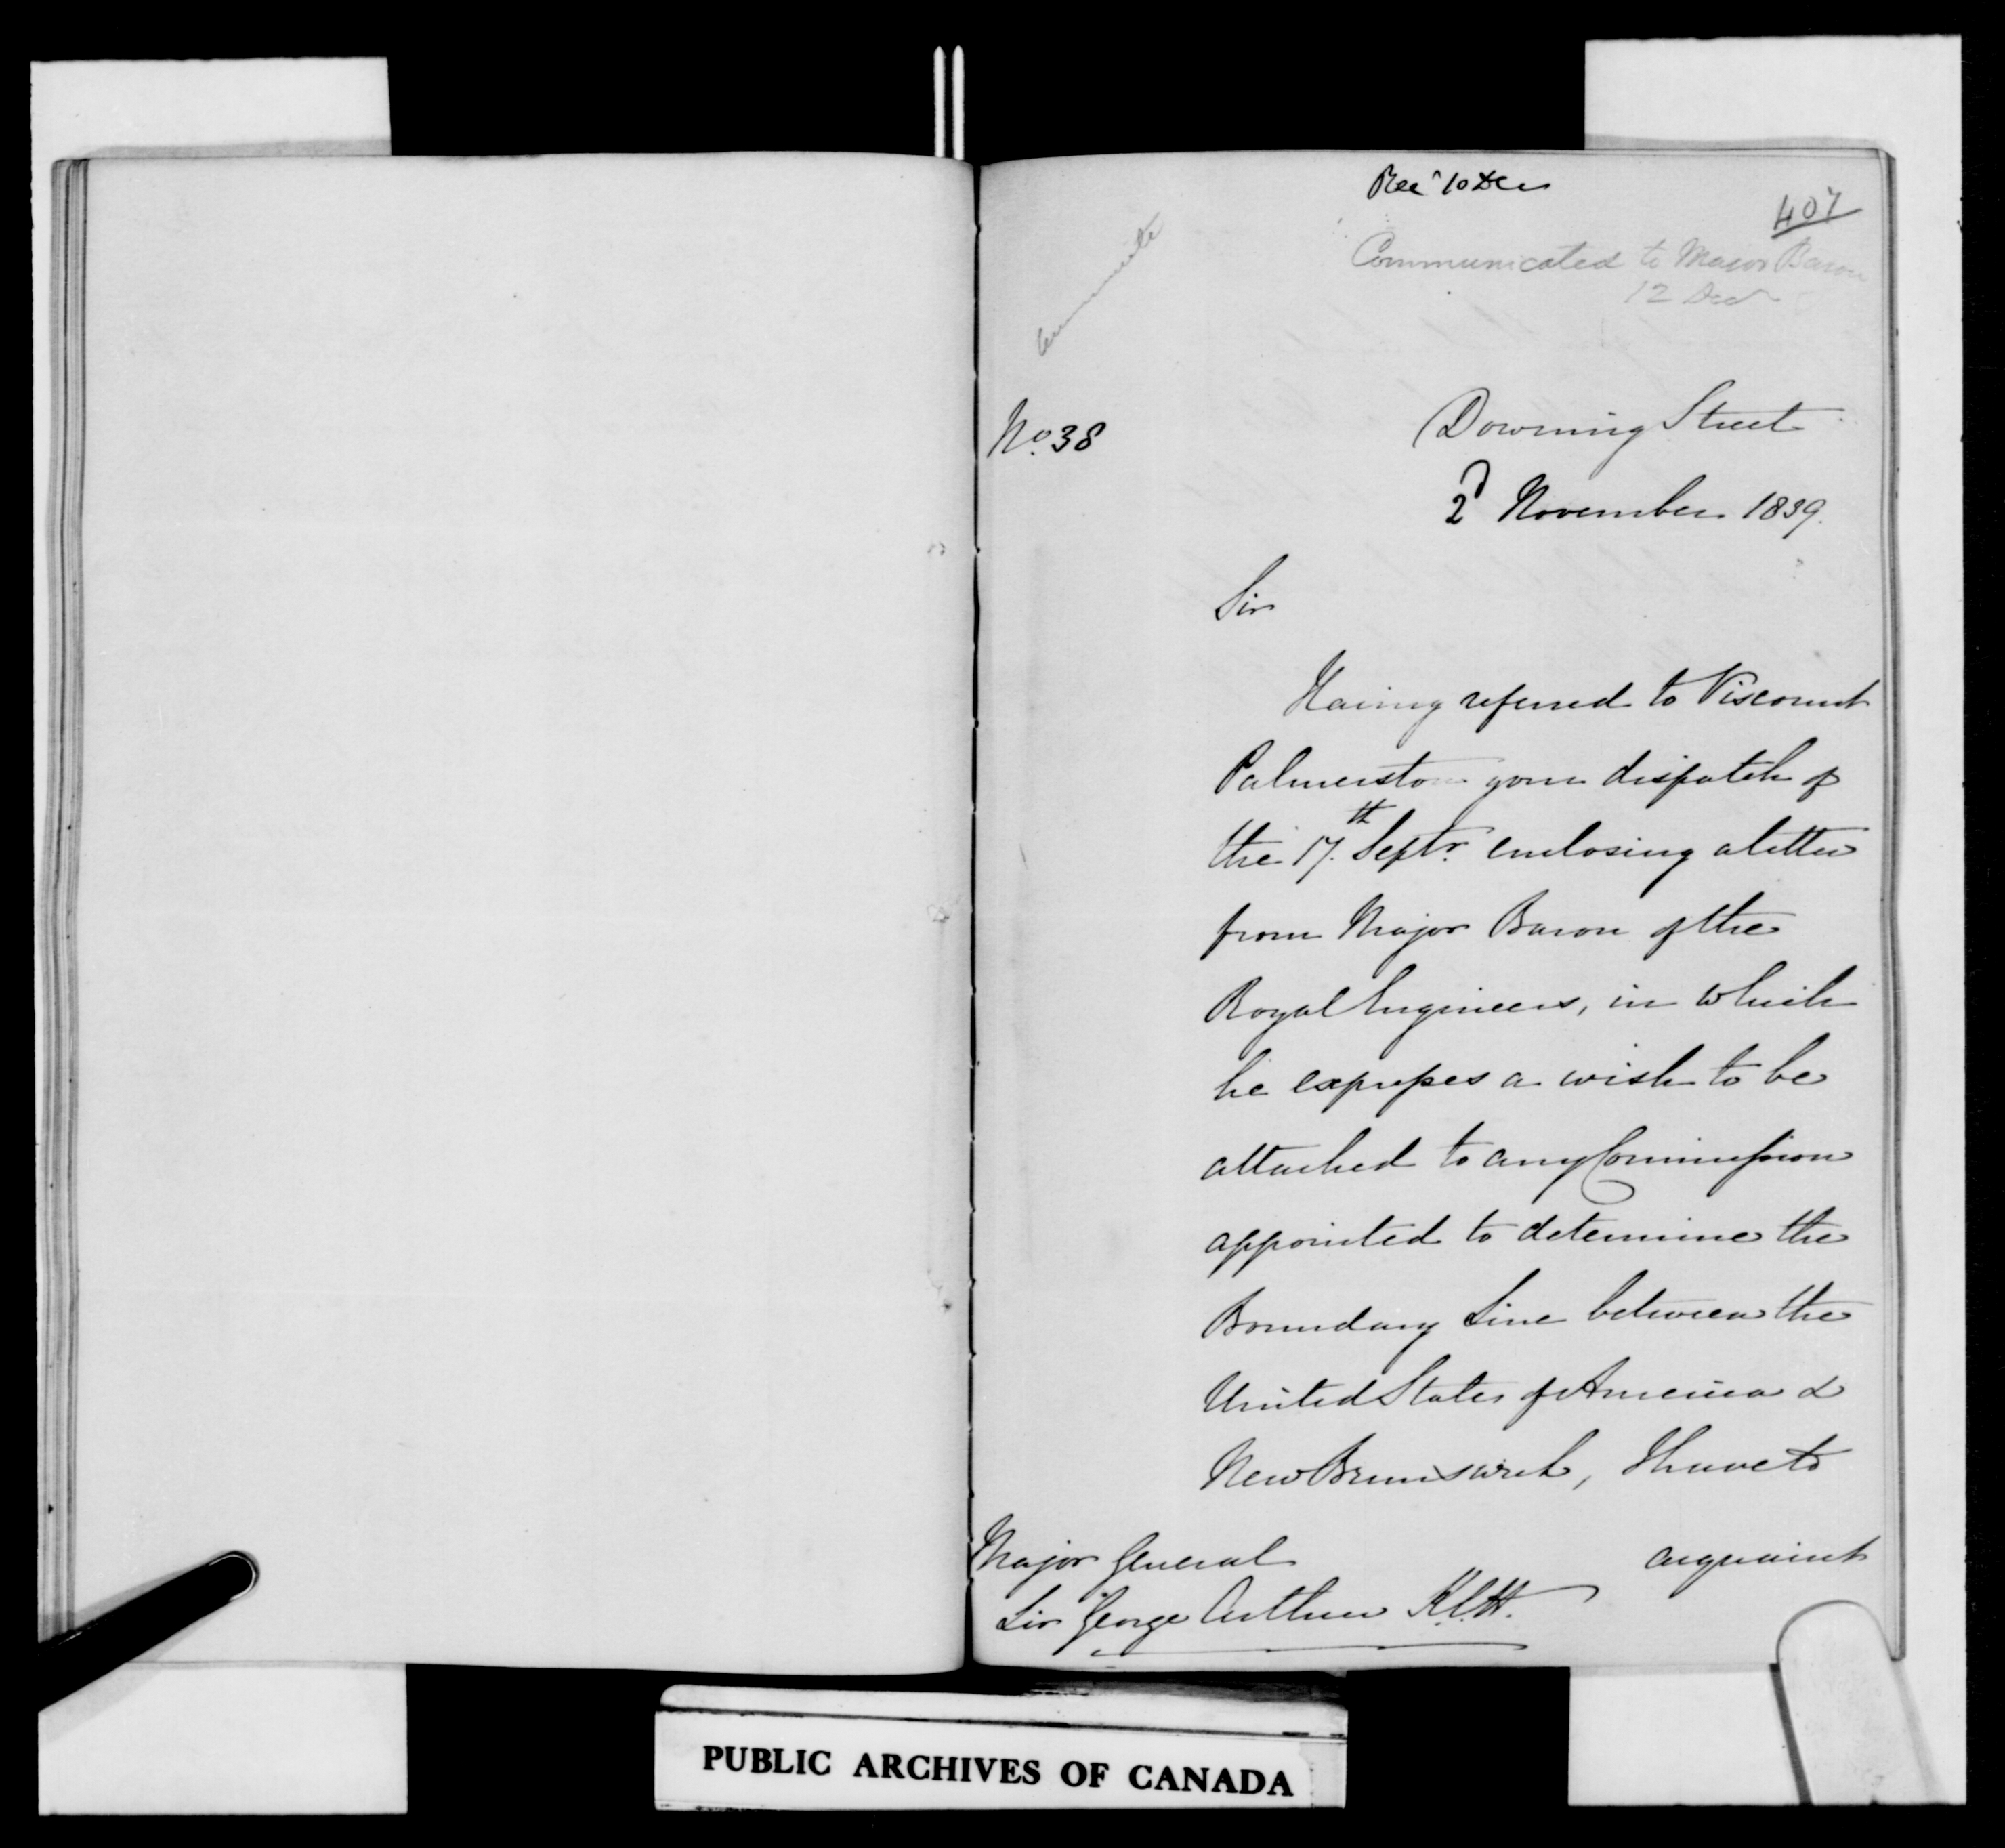 Recd 10 Decr
407
Communicated to Major Baron
12 Decr
Communicate
No. 38
Downing Street
2d November 1839.
Sir
Having referred to Viscount
Palmerston your dispatch of
the 17th. Septr. enclosing a letter
from Major Baron of the
Royal Engineers, in which
he expresses a wish to be
attached to any Commission
appointed to determine the
Boundary Line between the
United States of America &
New Brunswick, I have to
acquaint
Major General
Sir George Arthur K.C.H.
PUBLIC ARCHIVES OF CANADA